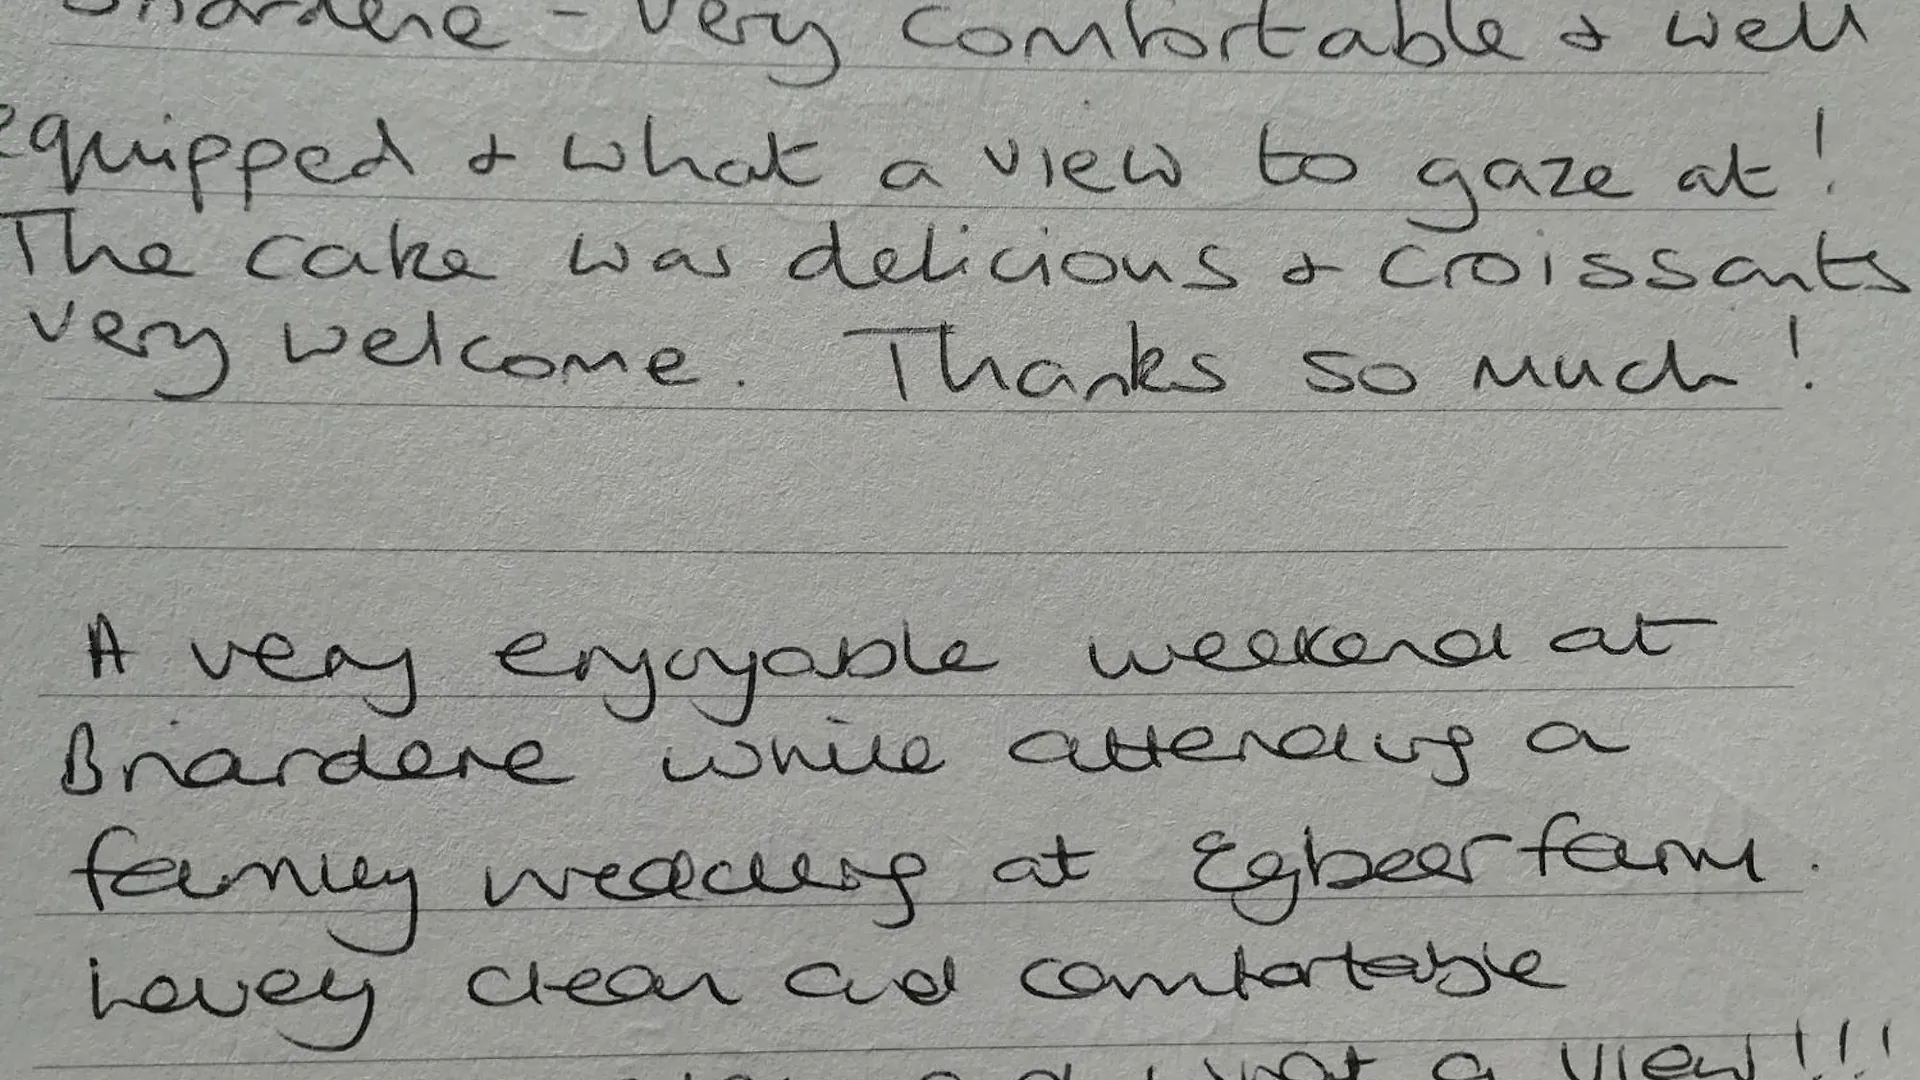 Briardene - Very comfortable & well
equipped & what a view to gaze at!
The cake was delicious & croissants
very welcome. Thanks so much!
A very enjoyable weekend at
Briardene while attending a
family wedding at Egbeer farm.
Lovely clean and comfortable
what a view!!!